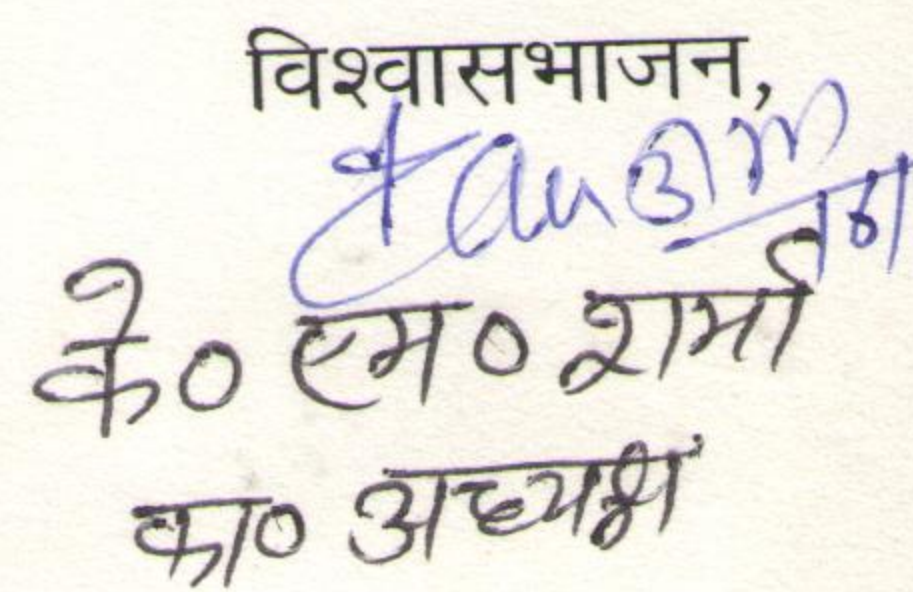 विश्वासभाजन,
के० एम० शर्मा
का० अध्यक्ष